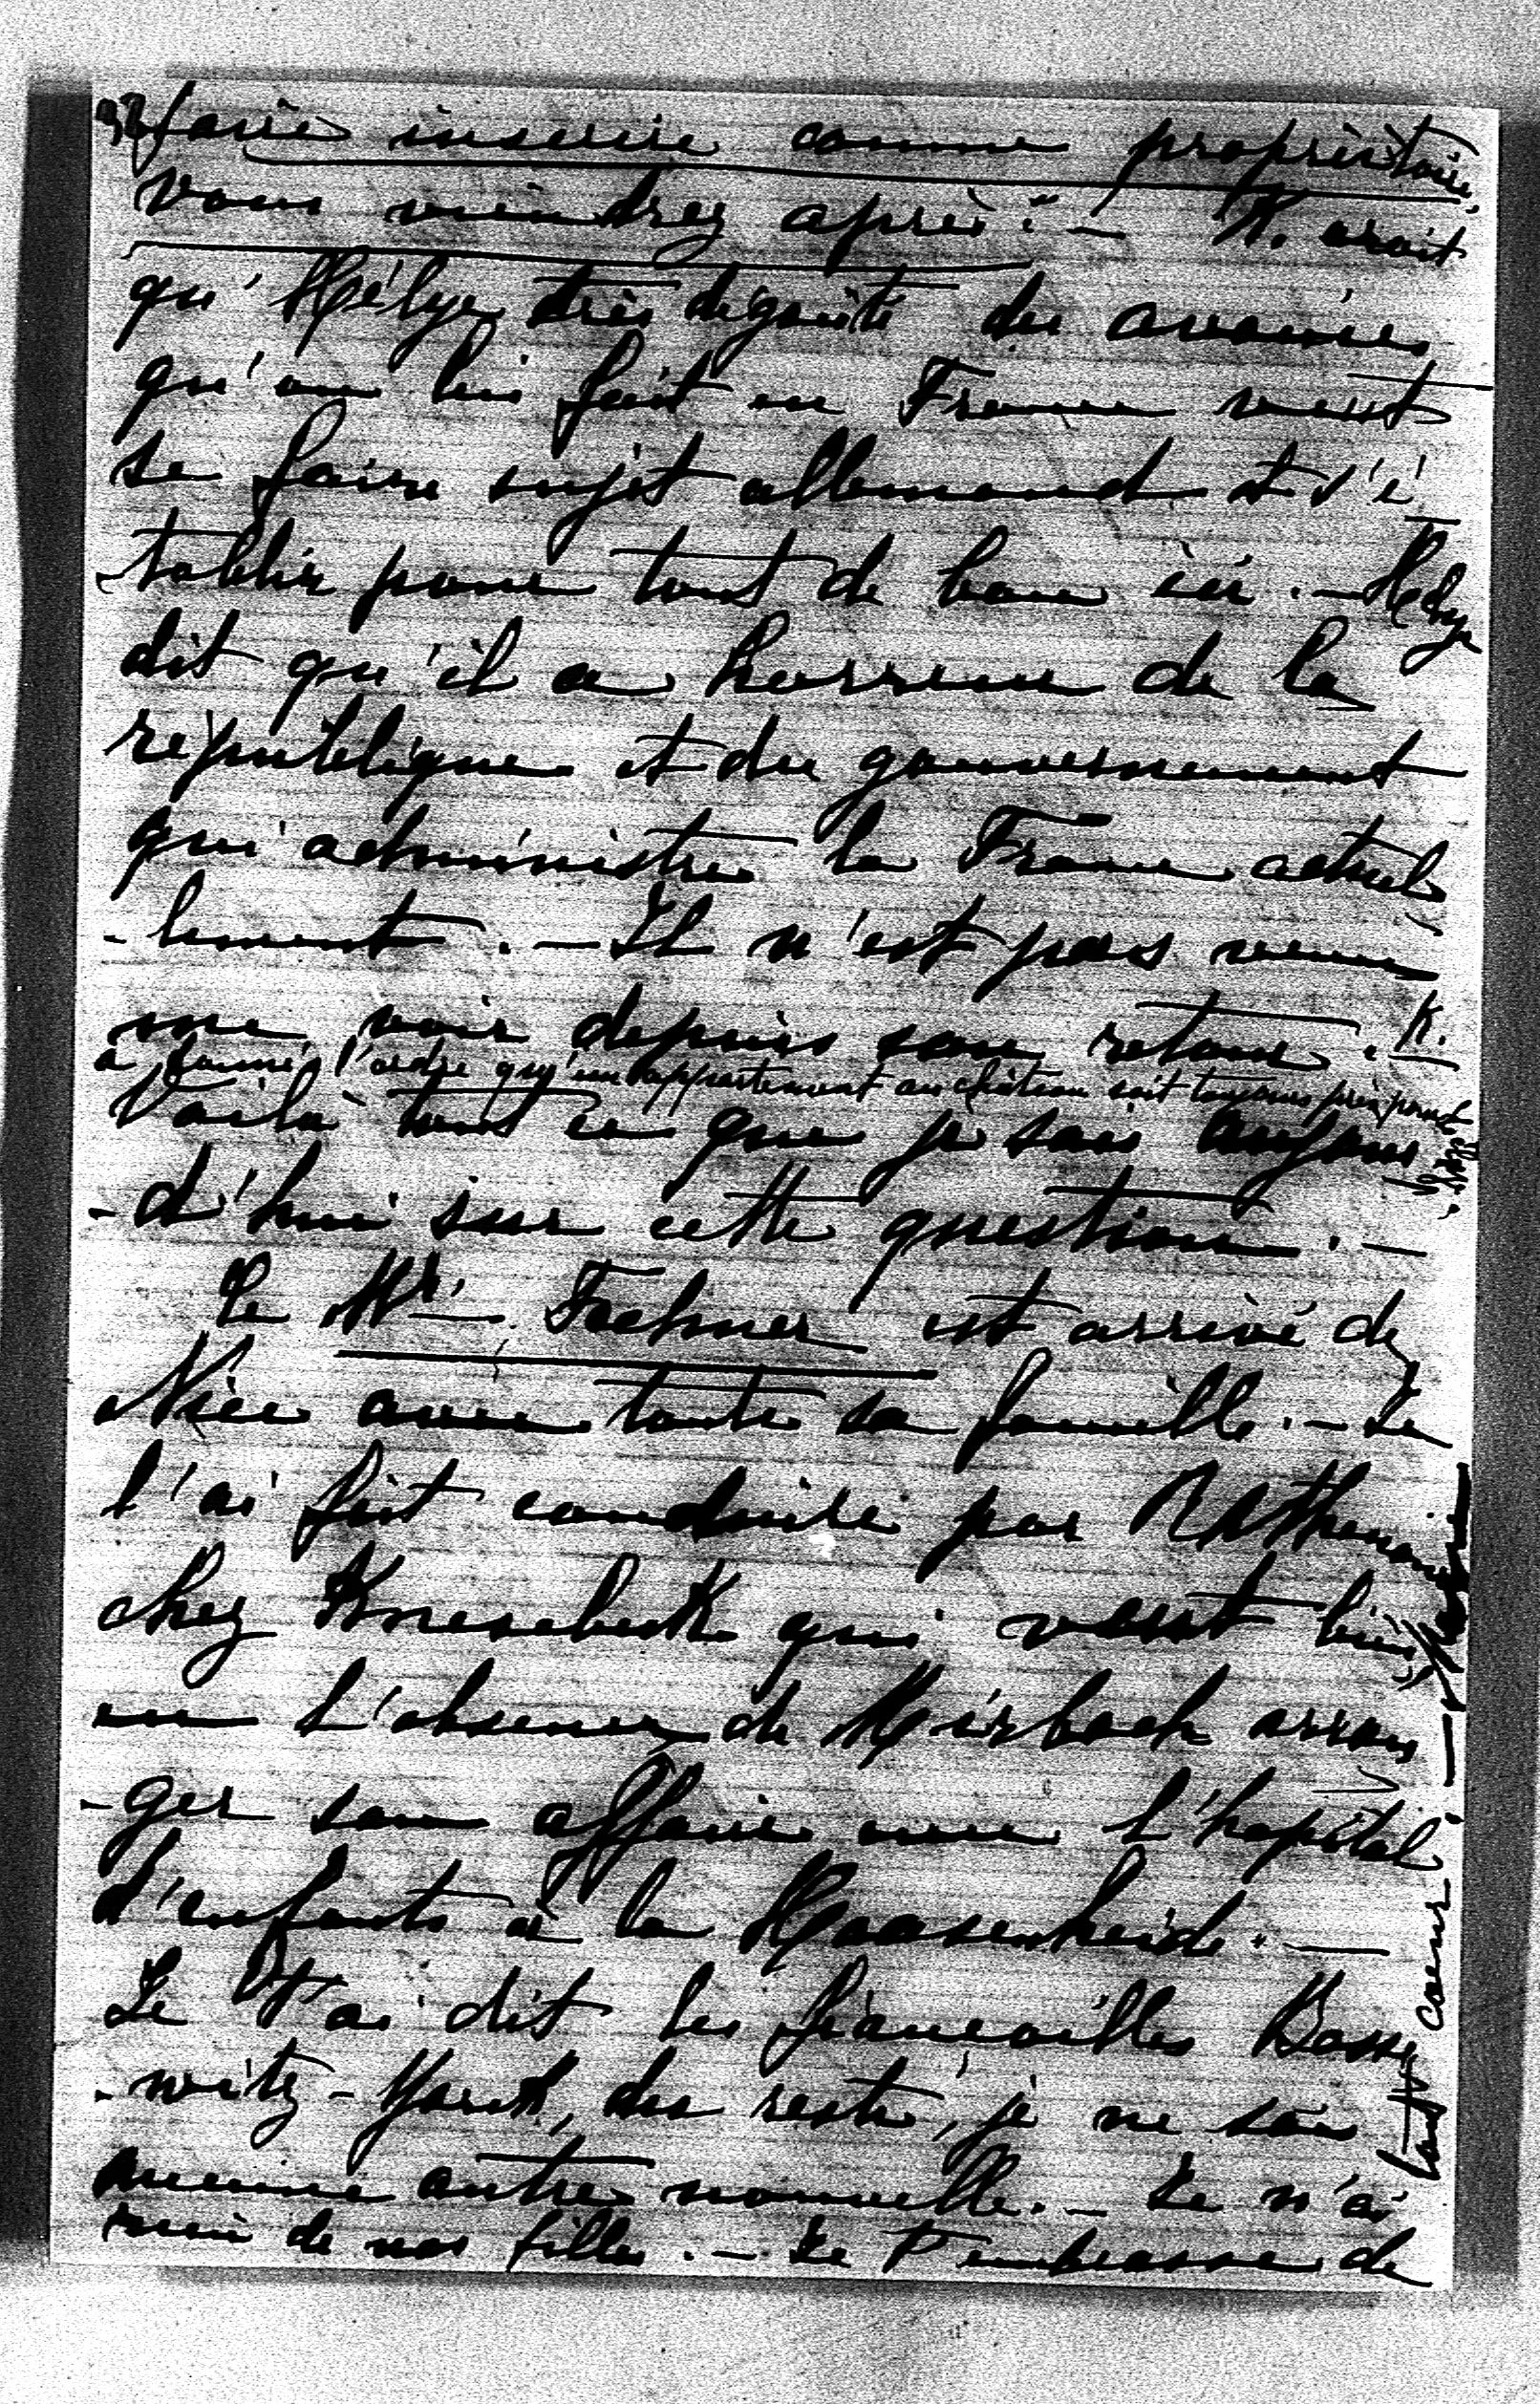 faire inscrire comme propriètaire,
vous viendrez après." — K. croit
qu'Hélye très dégouté des avanies
qu'on lui fait en France veut
se faire sujet allemand et s'é
-tablir pour tout de bon ici. — Helye
dit qu'il a horreur de la
république et du gouvernement
qui administre la France actuel
-lement. — Il n'est pas venu
me voir depuis son retour. K.
a donné l'ordre qu'un appartement au château soit toujours prêt pour
Voilà tout ce que je sais aujour
-d'hui sur cette question. —
Le Mr. Fachner est arrivé de
Nice avec toute sa famille. — Je
l'ai fait conduire par Rathenau
chez Knesebeck qui veut bien
en l'absence de Mirbach arran
-ger son affaire avec l'hopital
d'enfants à la Haasenheide. —
Je t'ai dit les fiançailles Basse
-witz-Yorck, du reste, je ne sais
aucune autre nouvelle. — Je n'ai
rien de nos filles. — Je t'embrasse de
tout coeur. —